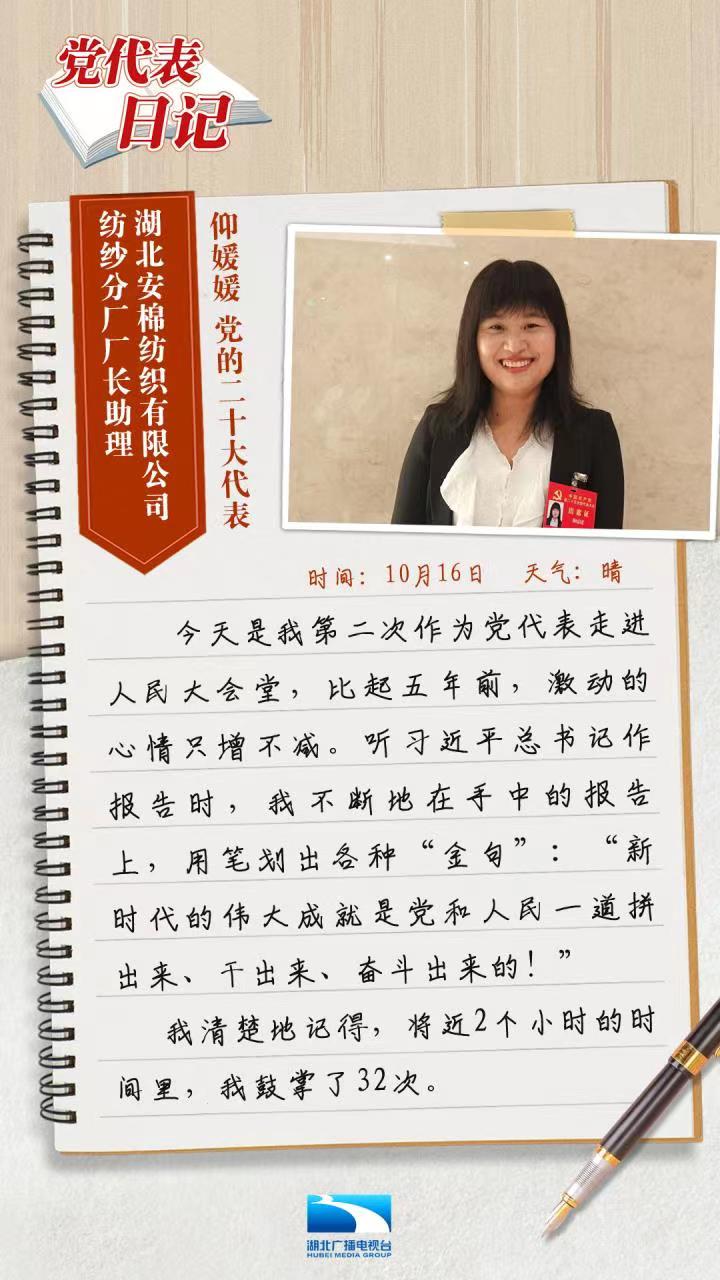 党代表
日记
湖北安棉纺织有限公司
纺纱分厂厂长助理
仰媛媛 党的二十大代表
出席证
时间：10月16日 天气：晴
今天是我第二次作为党代表走进
人民大会堂，比起五年前，激动的
心情只增不减。听习近平总书记作
报告时，我不断地在手中的报告
上，用笔划出各种“金句”：“新
时代的伟大成就是党和人民一道拼
出来、干出来、奋斗出来的！”
我清楚地记得，将近2个小时的时
间里，我鼓掌了32次。
湖北广播电视台
HUBEI MEDIA GROUP